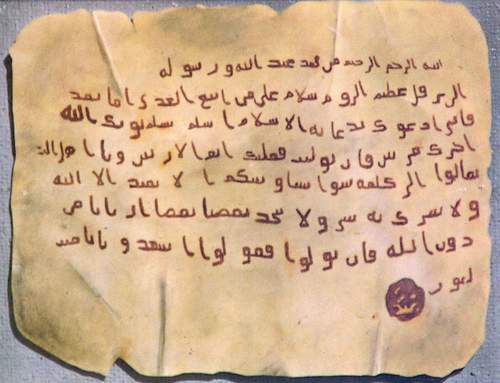 الله الرحمن الرحيم من محمد عبد الله ورسوله
الى هرقل عظيم الروم سلام على من اتبع الهدى اما بعد
فانى ادعوك بدعاية الاسلام اسلم تسلم يوتك الله
اجرك مرتين فان توليت فعليك اثم الاريسين ويا اهل الكتب
تعالوا الى كلمة سوا بيننا وبينكم الا نعبد الا الله
ولا نشرك به شيا ولا يتخذ بعضنا بعضا اربابا من
دون الله فان تولوا فقولوا اشهدوا بانا مسلـ
مون